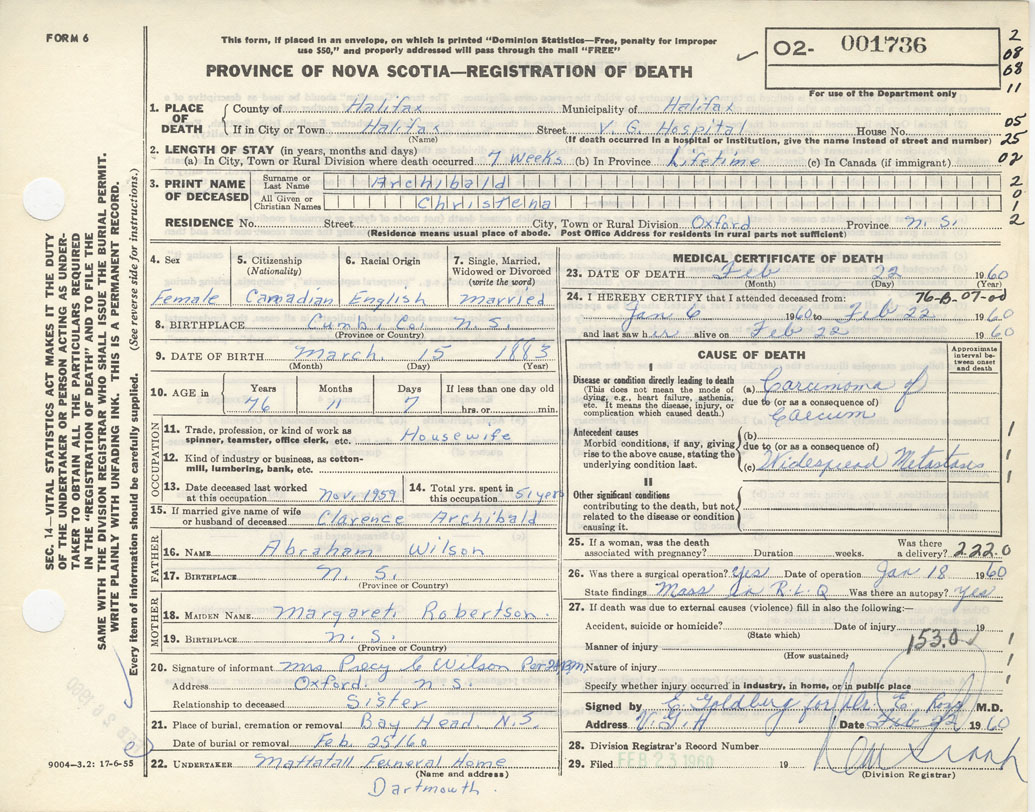 FORM 6
This form, if placed in an envelope, on which is printed "Dominion Statistics—Free, penalty for improper
use $50," and properly addressed will pass through the mail "FREE"
PROVINCE OF NOVA SCOTIA—REGISTRATION OF DEATH
02- 001736
For use of the Department only
2
08
68
11
05
25
02
2
0
1
2
1. PLACE OF DEATH County of Halifax Municipality of Halifax
If in City or Town Halifax Street V. G. Hospital House No.
(Name) (If death occurred in a hospital or institution, give the name instead of street and number)
2. LENGTH OF STAY (in years, months and days)
(a) In City, Town or Rural Division where death occurred 7 Weeks (b) In Province Lifetime (c) In Canada (if immigrant)
3. PRINT NAME OF DECEASED Surname or Last Name Archibald
All Given or Christian Names Christena
RESIDENCE No. Street City, Town or Rural Division Oxford Province N. S.
(Residence means usual place of abode. Post Office Address for residents in rural parts not sufficient)
SEC. 14—VITAL STATISTICS ACT MAKES IT THE DUTY
OF THE UNDERTAKER OR PERSON ACTING AS UNDER-
TAKER TO OBTAIN ALL THE PARTICULARS REQUIRED
IN THE "REGISTRATION OF DEATH" AND TO FILE THE
SAME WITH THE DIVISION REGISTRAR WHO SHALL ISSUE THE BURIAL PERMIT.
WRITE PLAINLY WITH UNFADING INK. THIS IS A PERMANENT RECORD.
Every item of information should be carefully supplied. (See reverse side for instructions.)
4. Sex
Female
5. Citizenship
(Nationality)
Canadian
6. Racial Origin
English
7. Single, Married,
Widowed or Divorced
(write the word)
Married
8. BIRTHPLACE Cumb. Co. N. S.
(Province or Country)
9. DATE OF BIRTH March 15 1883
(Month) (Day) (Year)
10. AGE in Years Months Days If less than one day old
76 11 7 hrs. or min.
OCCUPATION
11. Trade, profession, or kind of work as
spinner, teamster, office clerk, etc. Housewife
12. Kind of industry or business, as cotton-
mill, lumbering, bank, etc.
13. Date deceased last worked
at this occupation Nov. 1959
14. Total yrs. spent in
this occupation 51 yers
15. If married give name of wife
or husband of deceased Clarence Archibald
FATHER
16. NAME Abraham Wilson
17. BIRTHPLACE N. S.
(Province or Country)
MOTHER
18. MAIDEN NAME Margaret Robertson
19. BIRTHPLACE N. S.
(Province or Country)
20. Signature of informant Mrs Piecy C Wilson Per
Address Oxford. N S.
Relationship to deceased Sister
21. Place of burial, cremation or removal Bay Head. N.S.
Date of burial or removal Feb. 25/60
22. UNDERTAKER Mattatall Feneral Home
(Name and address)
Dartmouth.
9004—3.2: 17-6-55
MEDICAL CERTIFICATE OF DEATH
23. DATE OF DEATH Feb 22 1960
(Month) (Day)
24. I HEREBY CERTIFY that I attended deceased from: 76-B-07-00
Jan 6 1960 to Feb 22 1960
and last saw her alive on Feb 22 1960
CAUSE OF DEATH
Approximate
interval be-
tween onset
and death
I
Disease or condition directly leading to death
(This does not mean the mode of
dying, e.g., heart failure, asthenia,
etc. It means the disease, injury, or
complication which caused death.)
(a) Carcinoma of
due to (or as a consequence of)
Caecum
Antecedent causes
Morbid conditions, if any, giving
rise to the above cause, stating the
underlying condition last.
(b)
due to (or as a consequence of)
(c) Widespread Metastases
II
Other significant conditions
contributing to the death, but not
related to the disease or condition
causing it.
25. If a woman, was the death
associated with pregnancy? Duration weeks. Was there
a delivery? 222.0
26. Was there a surgical operation? Yes Date of operation Jan 18 1960
State findings Mass in R.L.Q Was there an autopsy? Yes
27. If death was due to external causes (violence) fill in also the following:—
Accident, suicide or homicide? Date of injury 19
(State which)
Manner of injury 153.0
(How sustained)
Nature of injury
Specify whether injury occurred in industry, in home, or in public place
Signed by E Goldberg for Dr. E. Ross M.D.
Address V. G. H Date Feb 22 1960
28. Division Registrar's Record Number
29. Filed FEB 23 1960 19
(Division Registrar)